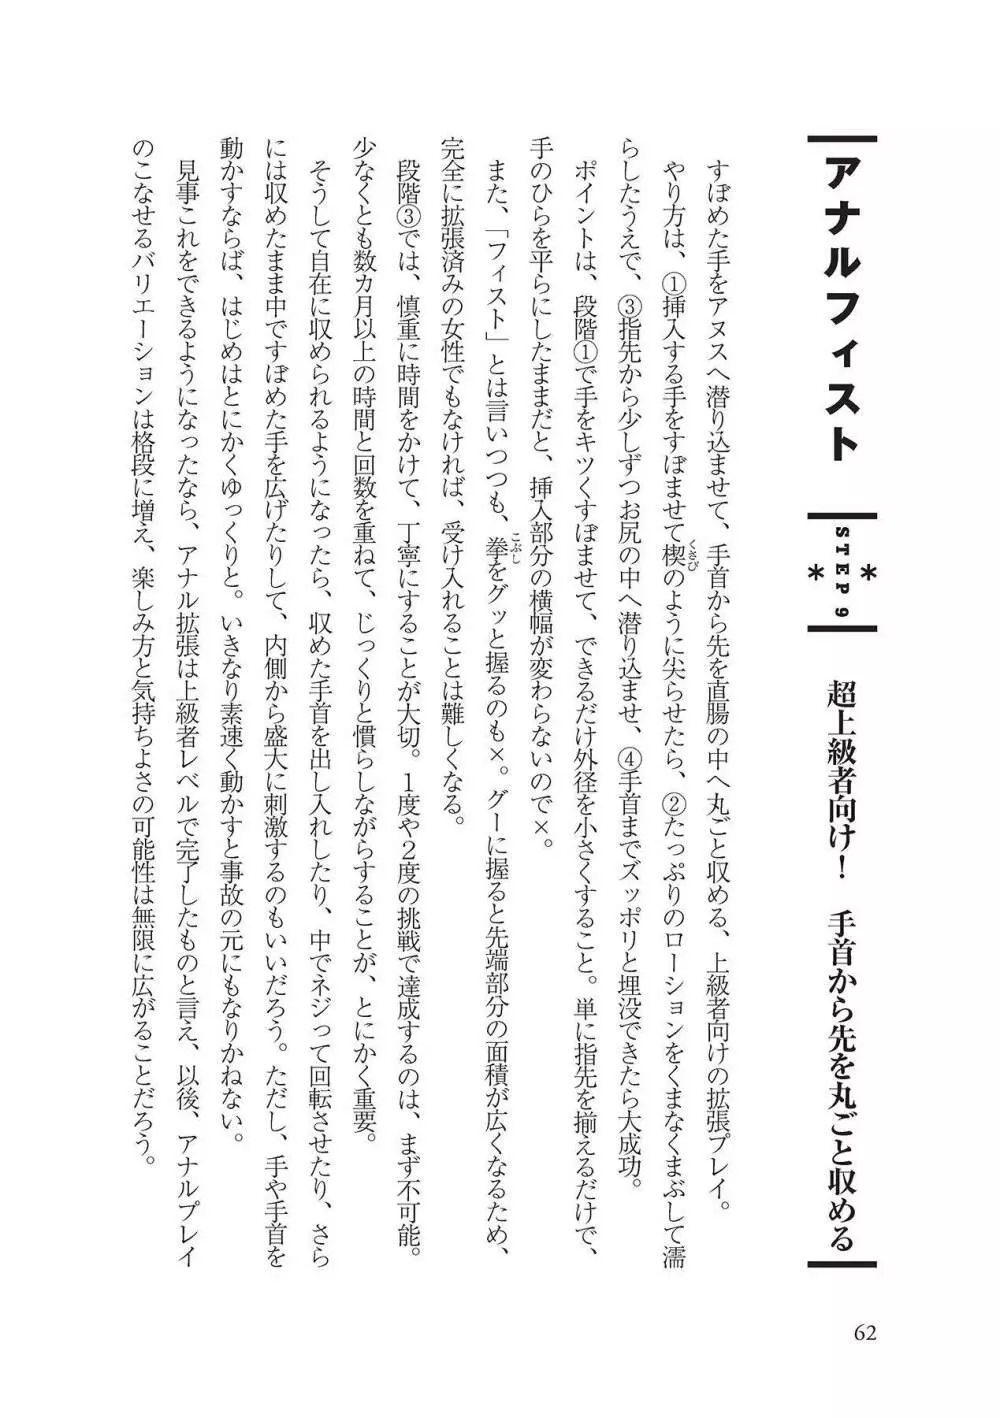 アナルフィスト
STEP 9
＊
＊
超上級者向け！　手首から先を丸ごと収める
すぼめた手をアヌスへ潜り込ませて、手首から先を直腸の中へ丸ごと収める、上級者向けの拡張プレイ。
やり方は、①挿入する手をすぼませて楔のように尖らせたら、②たっぷりのローションをくまなくまぶして濡
くさび
らしたうえで、③指先から少しずつお尻の中へ潜り込ませ、④手首までズッポリと埋没できたら大成功。
ポイントは、段階①で手をキツくすぼませて、できるだけ外径を小さくすること。単に指先を揃えるだけで、
手のひらを平らにしたままだと、挿入部分の横幅が変わらないので×。
また、「フィスト」とは言いつつも、拳をグッと握るのも×。グーに握ると先端部分の面積が広くなるため、
こぶし
完全に拡張済みの女性でもなければ、受け入れることは難しくなる。
段階③では、慎重に時間をかけて、丁寧にすることが大切。１度や２度の挑戦で達成するのは、まず不可能。
少なくとも数カ月以上の時間と回数を重ねて、じっくりと慣らしながらすることが、とにかく重要。
そうして自在に収められるようになったら、収めた手首を出し入れしたり、中でネジって回転させたり、さら
には収めたまま中ですぼめた手を広げたりして、内側から盛大に刺激するのもいいだろう。ただし、手や手首を
動かすならば、はじめはとにかくゆっくりと。いきなり素速く動かすと事故の元にもなりかねない。
見事これをできるようになったなら、アナル拡張は上級者レベルで完了したものと言え、以後、アナルプレイ
のこなせるバリエーションは格段に増え、楽しみ方と気持ちよさの可能性は無限に広がることだろう。
62